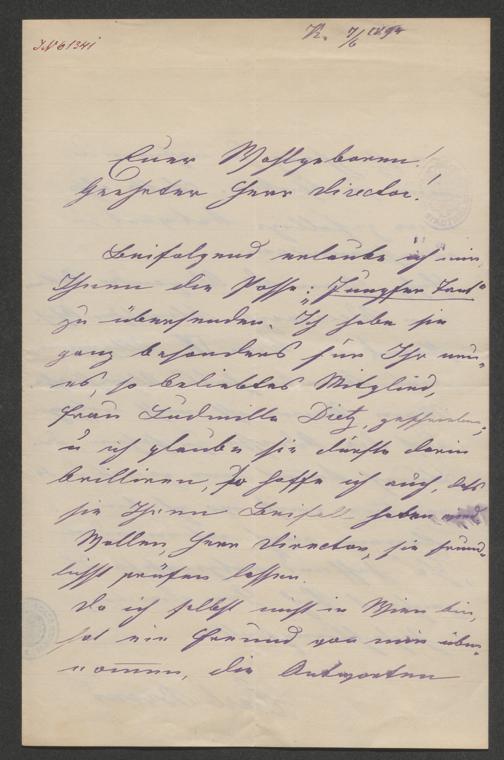 INo 61341
7/6 1894
Euer Wohlgeboren!
Geehrter Herr Director!
Beifolgend erlaube ich mir
Ihnen die Posse: „Jungfer Tant"
zu übersenden. Ich habe sie
ganz besonders für Ihr neu-
es, so beliebtes Mitglied,
Frau Ludmilla Dietz, geschrieben,
u ich glaube sie dürfte darin
brilliren, so hoffe ich auch, daß
sie Ihren Beifall haben wird
Wollen, Herr Director, sie freund-
lichst prüfen lassen.
Da ich selbst nicht in Wien bin,
hat ein Freund von mir über-
nommen, die Antworten